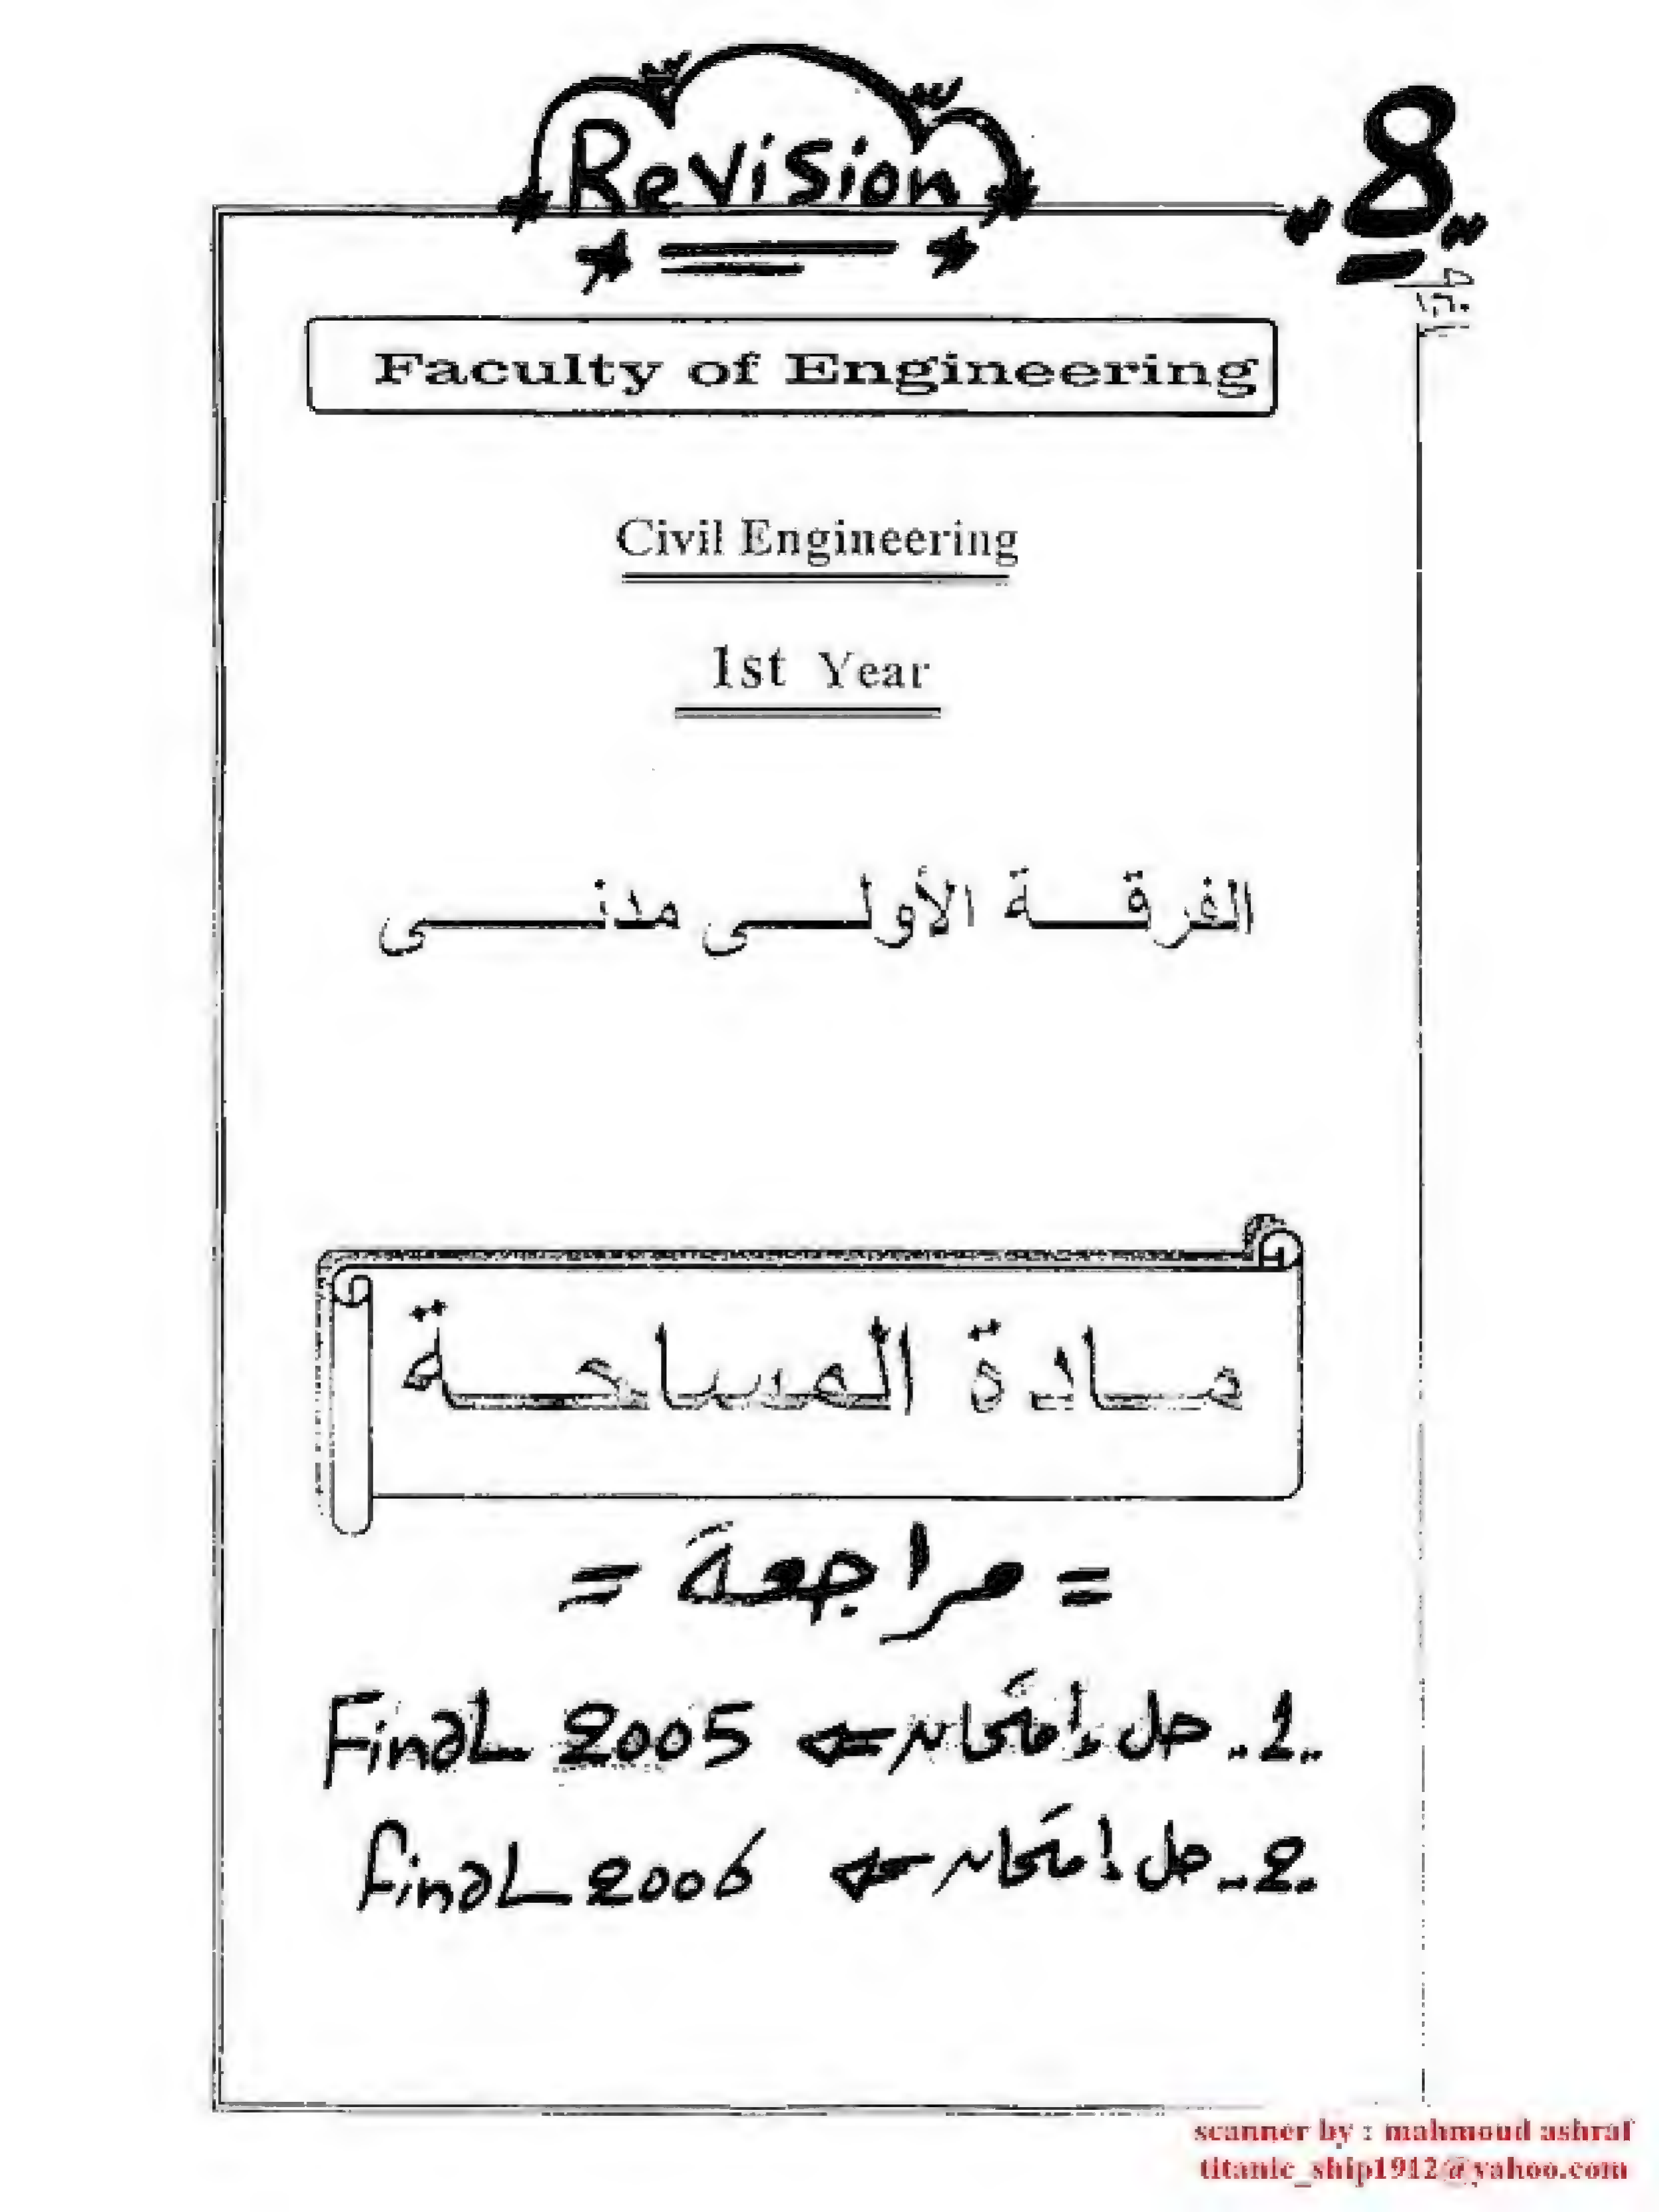 Revision
8
Faculty of Engineering
Civil Engineering
1st Year
الفرقة الأولى مدنى
مادة المساحة
= مراجعة =
1- حل إمتحان ⇐ Final 2005
2- حل إمتحان ⇐ Final 2006
scanner by : mahmoud ashraf
titanic_ship1912@yahoo.com